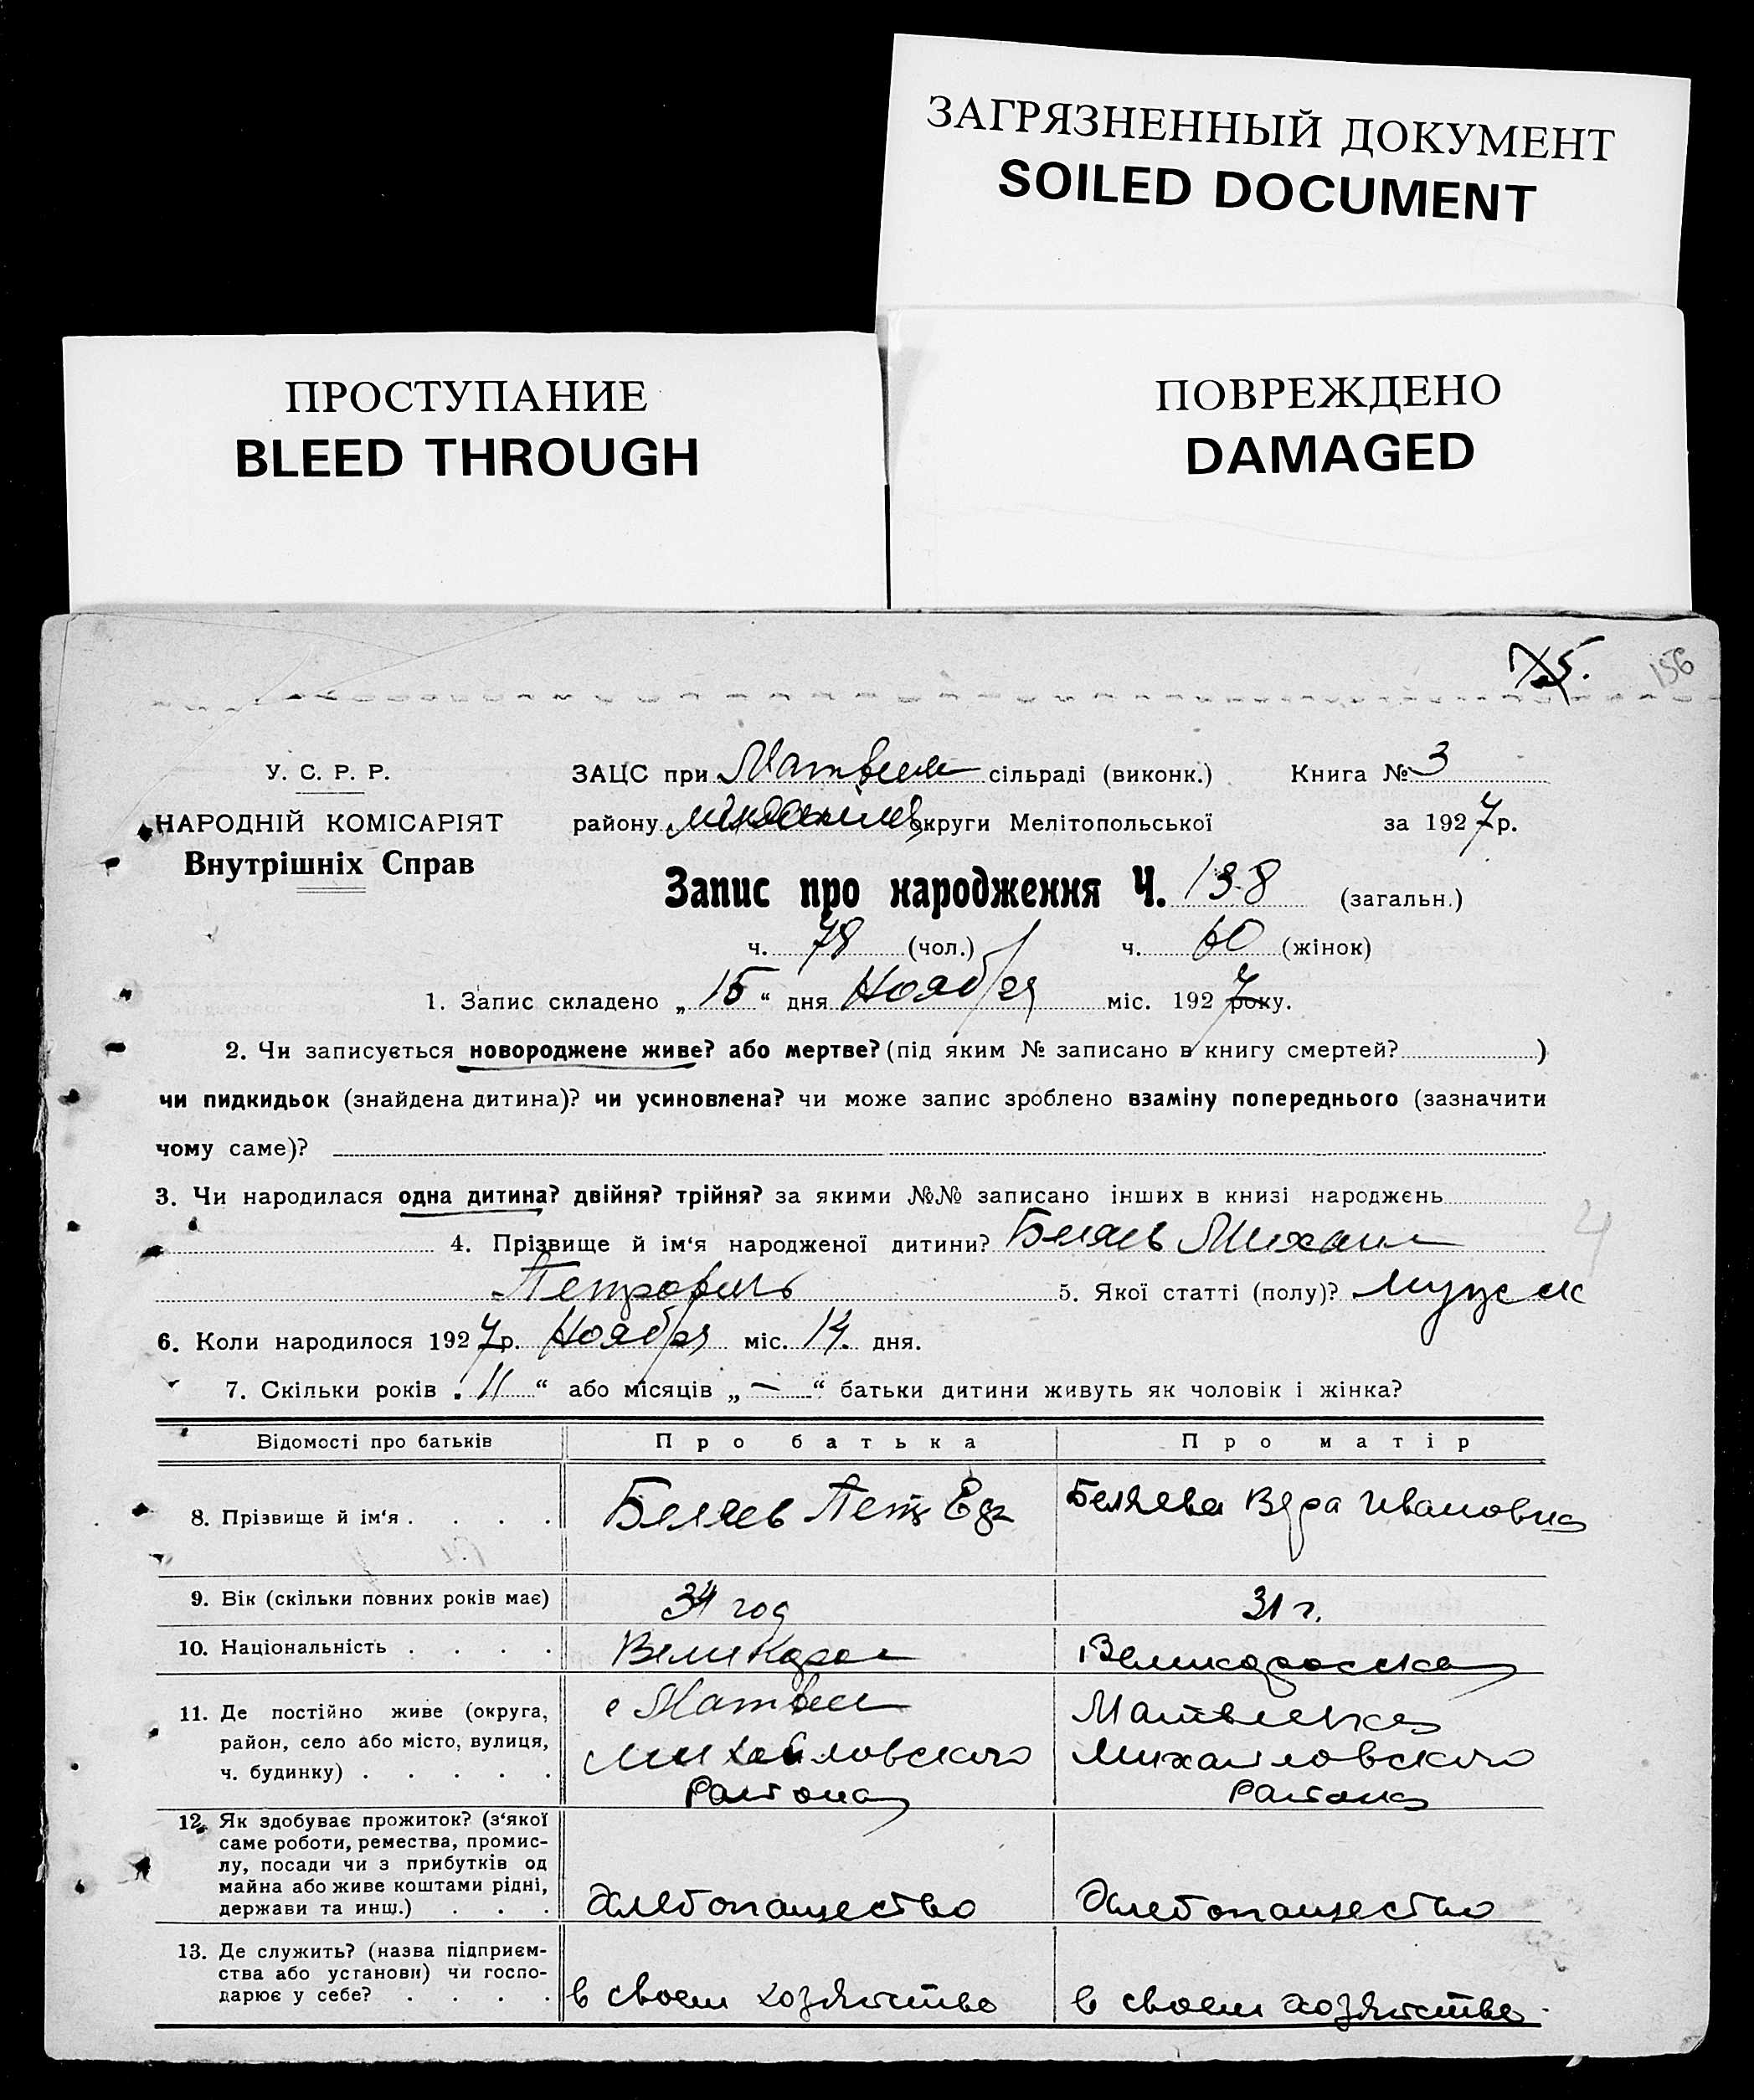 ЗАГРЯЗНЕННЫЙ ДОКУМЕНТ
SOILED DOCUMENT
ПРОСТУПАНИЕ
BLEED THROUGH
ПОВРЕЖДЕНО
DAMAGED
75. 156
У. С. Р. Р.
НАРОДНІЙ КОМІСАРІЯТ
Внутрішніх Справ
ЗАЦС при Матвеев сільраді (виконк.) Книга № 3
району округи Мелітопольської за 1927 р.
Запис про народження Ч. 138 (загальн.)
ч. 78 (чол.) ч. 60 (жінок)
1. Запис складено „ 15 “ дня Ноября міс. 1927 року.
2. Чи записується новороджене живе? або мертве? (під яким № записано в книгу смертей? )
чи пидкидьок (знайдена дитина)? чи усиновлена? чи може запис зроблено взаміну попереднього (зазначити
чому саме)?
3. Чи народилася одна дитина? двійня? трійня? за якими №№ записано інших в книзі народжень
4. Прізвище й ім‘я народженої дитини? Беляев Михаил
Петрович 5. Якої статті (полу)? мужск
6. Коли народилося 1927 р. Ноября міс. 14. дня.
7. Скільки років „ 11 “ або місяців „ — “ батьки дитини живуть як чоловік і жінка?
Відомості про батьків Про батька Про матір
8. Прізвище й ім‘я . . . . Беляев Петр Беляева Вера Ивановна
9. Вік (скільки повних років має) 34 год 31 г.
10. Національність . . . . Великорос Великоросска
11. Де постійно живе (округа,
район, село або місто, вулиця,
ч. будинку) . . . . .
с Матвеев
Михайловского
Района
Матвеевка
Михайловского
Района
12. Як здобуває прожиток? (з‘якої
саме роботи, ремества, промис-
лу, посади чи з прибутків од
майна або живе коштами рідні,
держави та инш.) . . .
Хлебопашество Хлебопашество
13. Де служить? (назва підприєм-
ства або установи) чи госпо-
дарює у себе? . . . .
в своем хозяйстве в своем хозяйстве.